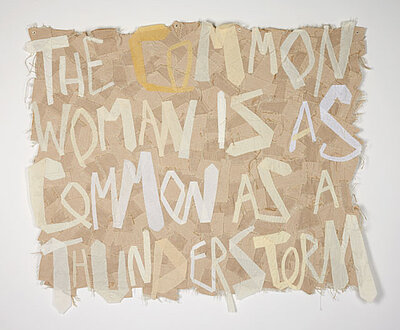 THE COMMON
WOMAN IS AS
COMMON AS A
THUNDERSTORM